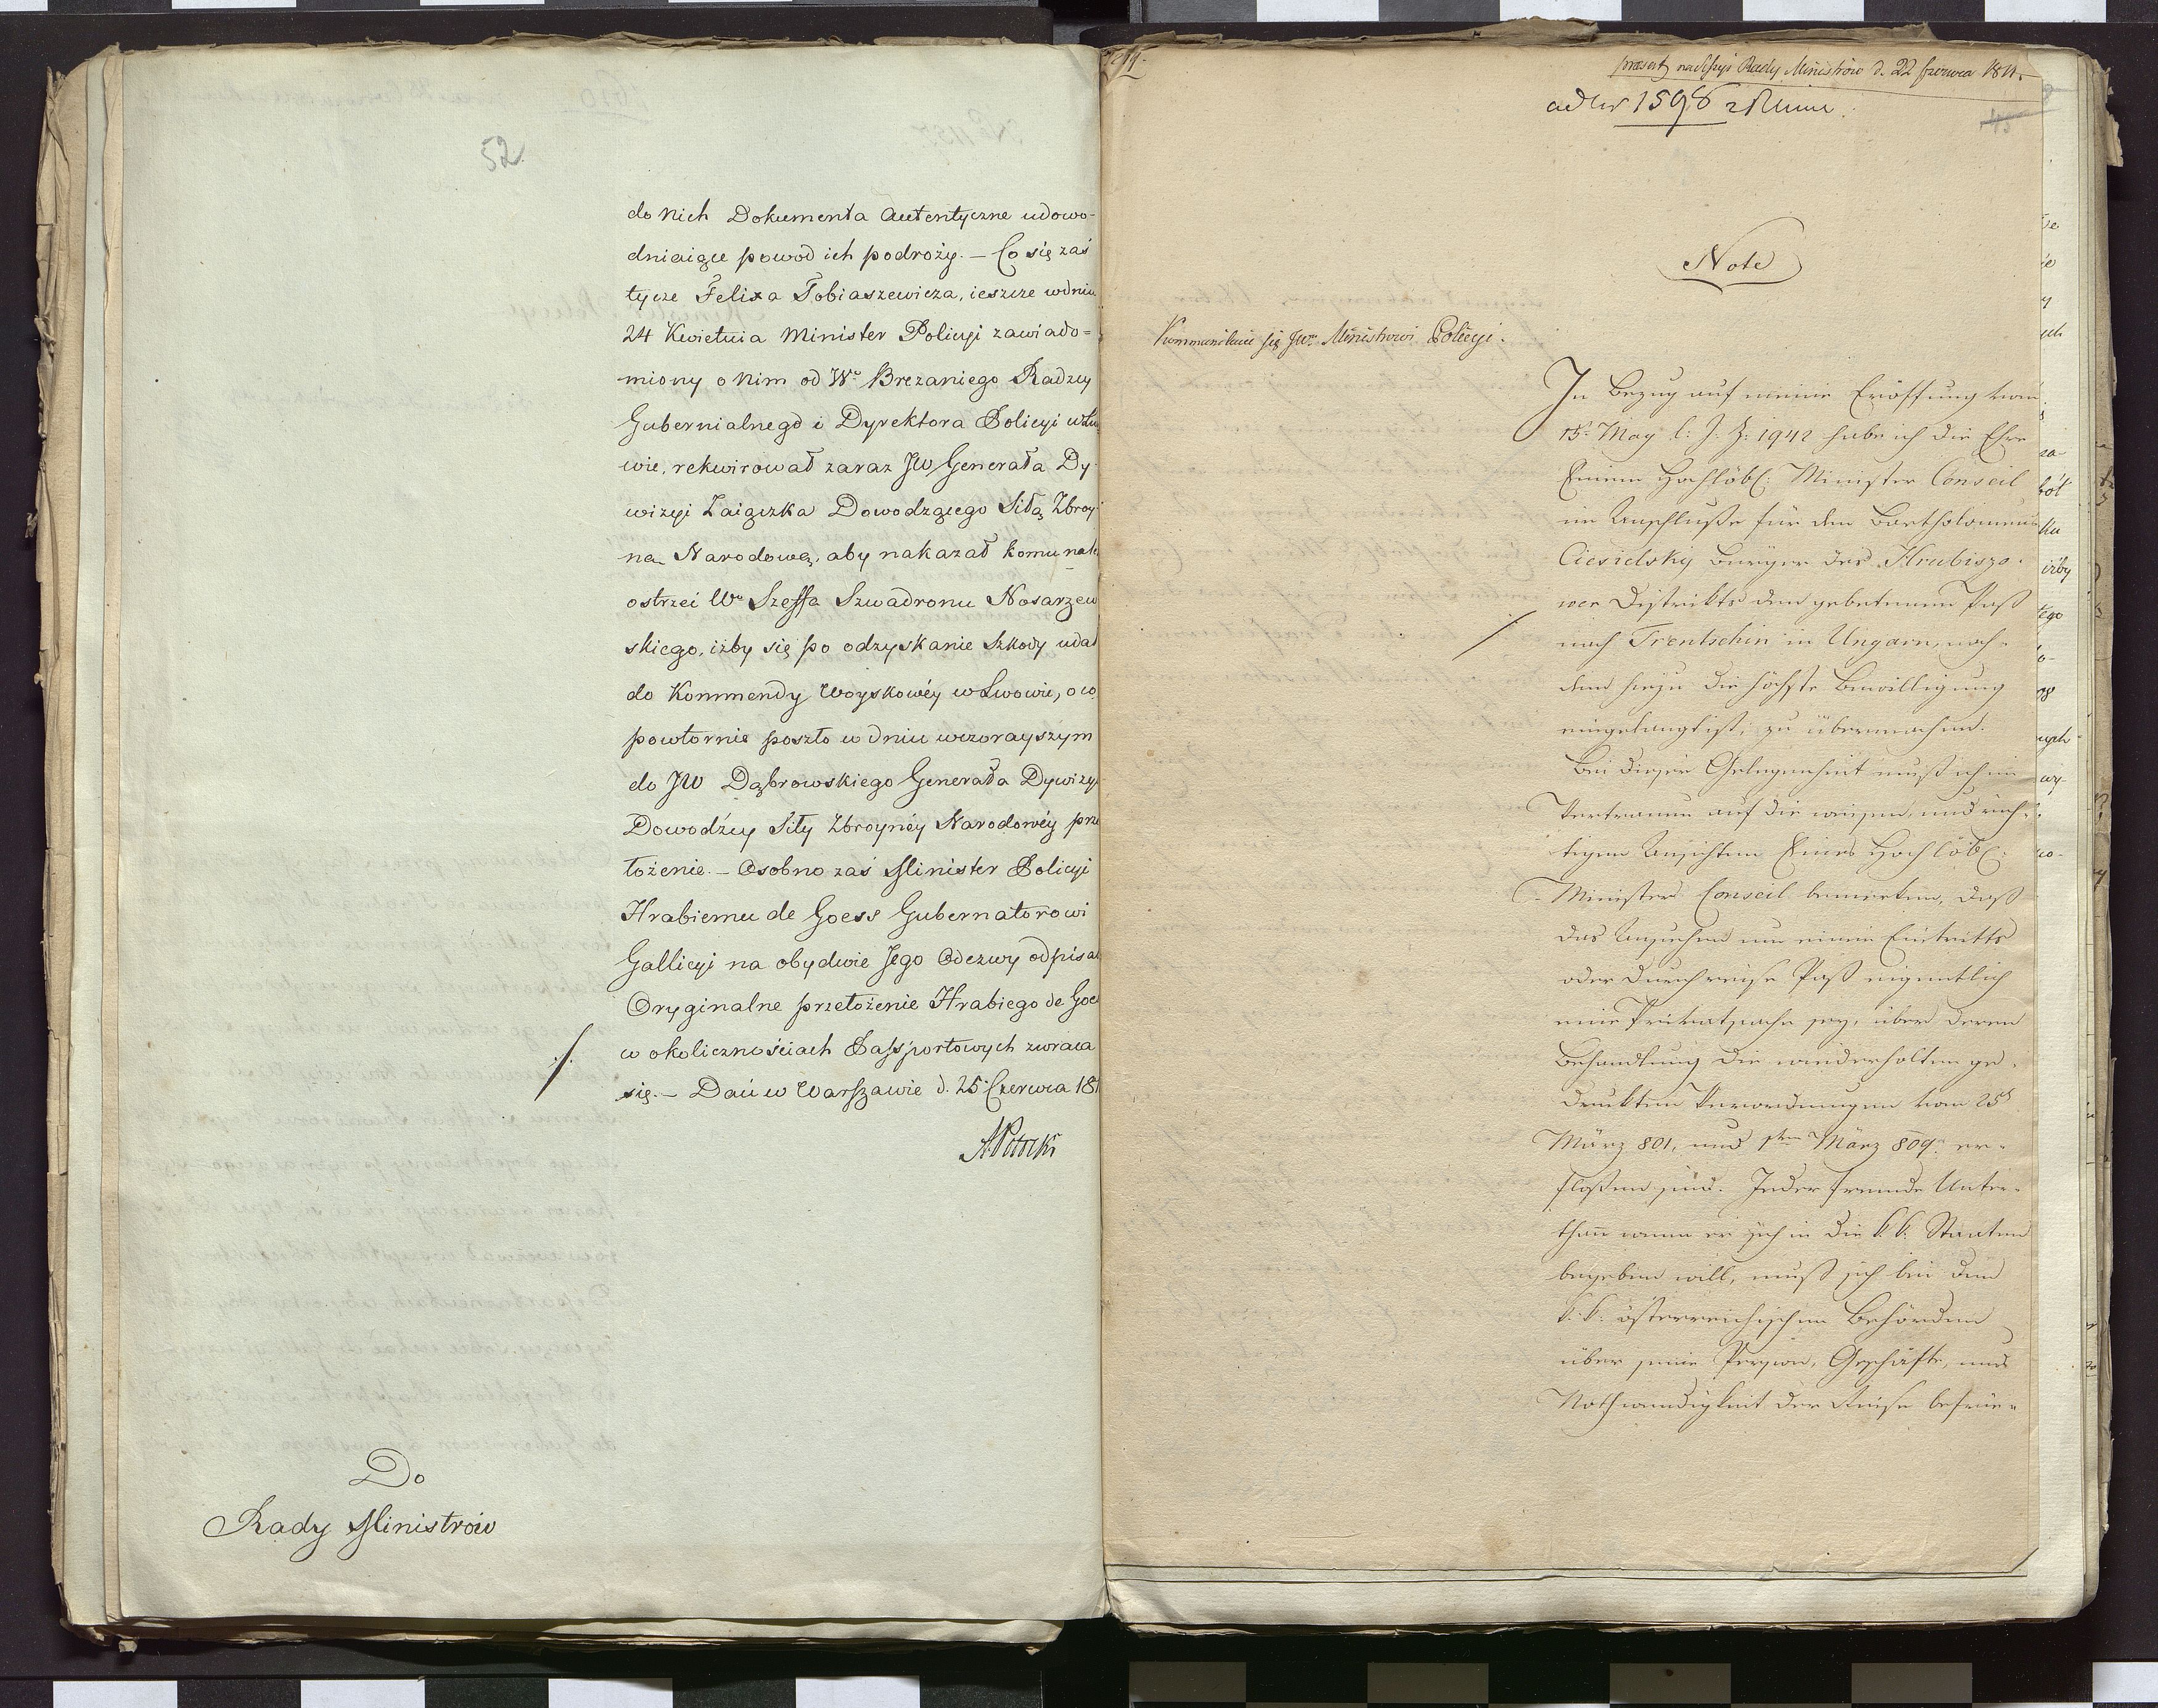 52.
do nich Dokumenta autentyczne udowo-
dniaiące powod ich podroży. – Co się zaś
tycze Felixa Tobiaszewicza, ieszcze w dniu
24 Kwietnia Minister Policyi zawiado=
miony o nim od Wo Brezaniego Radzcy
Gubernialnego i Dyrektora Policyi w Lwo
wie, rekwirował zaraz JW Generała Dy-
wizyi Zaiączka Dowodzącego Siłą Zbroy-
ną Narodową, aby nakazał komu nale
ostrzei Wo Szeffa Szwadronu Nosarzew
skiego, iżby się po odzyskanie Szkody udał
do Kommendy Woyskowéy w Lwowie, o co
powtornie poszło w dniu wczorayszym
do JW Dąbrowskiego Generała Dywizyi
Dowodźcy Siły Zbroynéy Narodowéy prze
łożenie. – Osobno zaś Minister Policyi
Hrabiemu de Goess Gubernatorowi
Gallicyi na obydwie Jego Odezwy odpisał
Oryginalne przełożenie Hrabiego de Goe
w okolicznościach Passportowych zwraca
się. – Dań w Warszawie d. 25 Czerwca 181
A Potocki
Do
Rady Ministrów
præsent nadssye Rady Ministrów d. 22 Czerwca 1811.
ad Nr 1596
45
Note
Kommunikuie się JWu Ministrowi Policyi.
In Bezug auf meine Eröffnung vom
15. May l: J. Z: 1942 habe ich die Ehre
Einem Hochlöbl: Minister Conseil
im Anschluße für den Bartholomeus
Ciesielsky Burger des Hrubiszo-
wer Distrikts den gebetenen Paß
nach Trentschin in Ungarn, nach-
dem hiezu die höchste Bewilligung
eingelangt ist, zu übermachen.
Bei dieser Gelegenheit muß ich im
Vertrauen auf die weisen, und rich-
tigen Ansichten Eines Hochlöbl:
Minister Conseil bemerken, daß
das Ansuchen um einen Eintritts
oder Durchreise Paß eigentlich
eine Privatsache sey, über deren
Behandlung die wiederholten ge-
druckten Verordnungen vom 25t
März 801, und 1ten März 809 er-
floßen sind. Jeder fremde Unter-
than wenn er sich in die k. k. Staaten
begeben will, muß sich bei den
k. k. österreichischen Behörden
über seine Person, Geschäfte, und
Nothwendigkeit der Reise befrie-